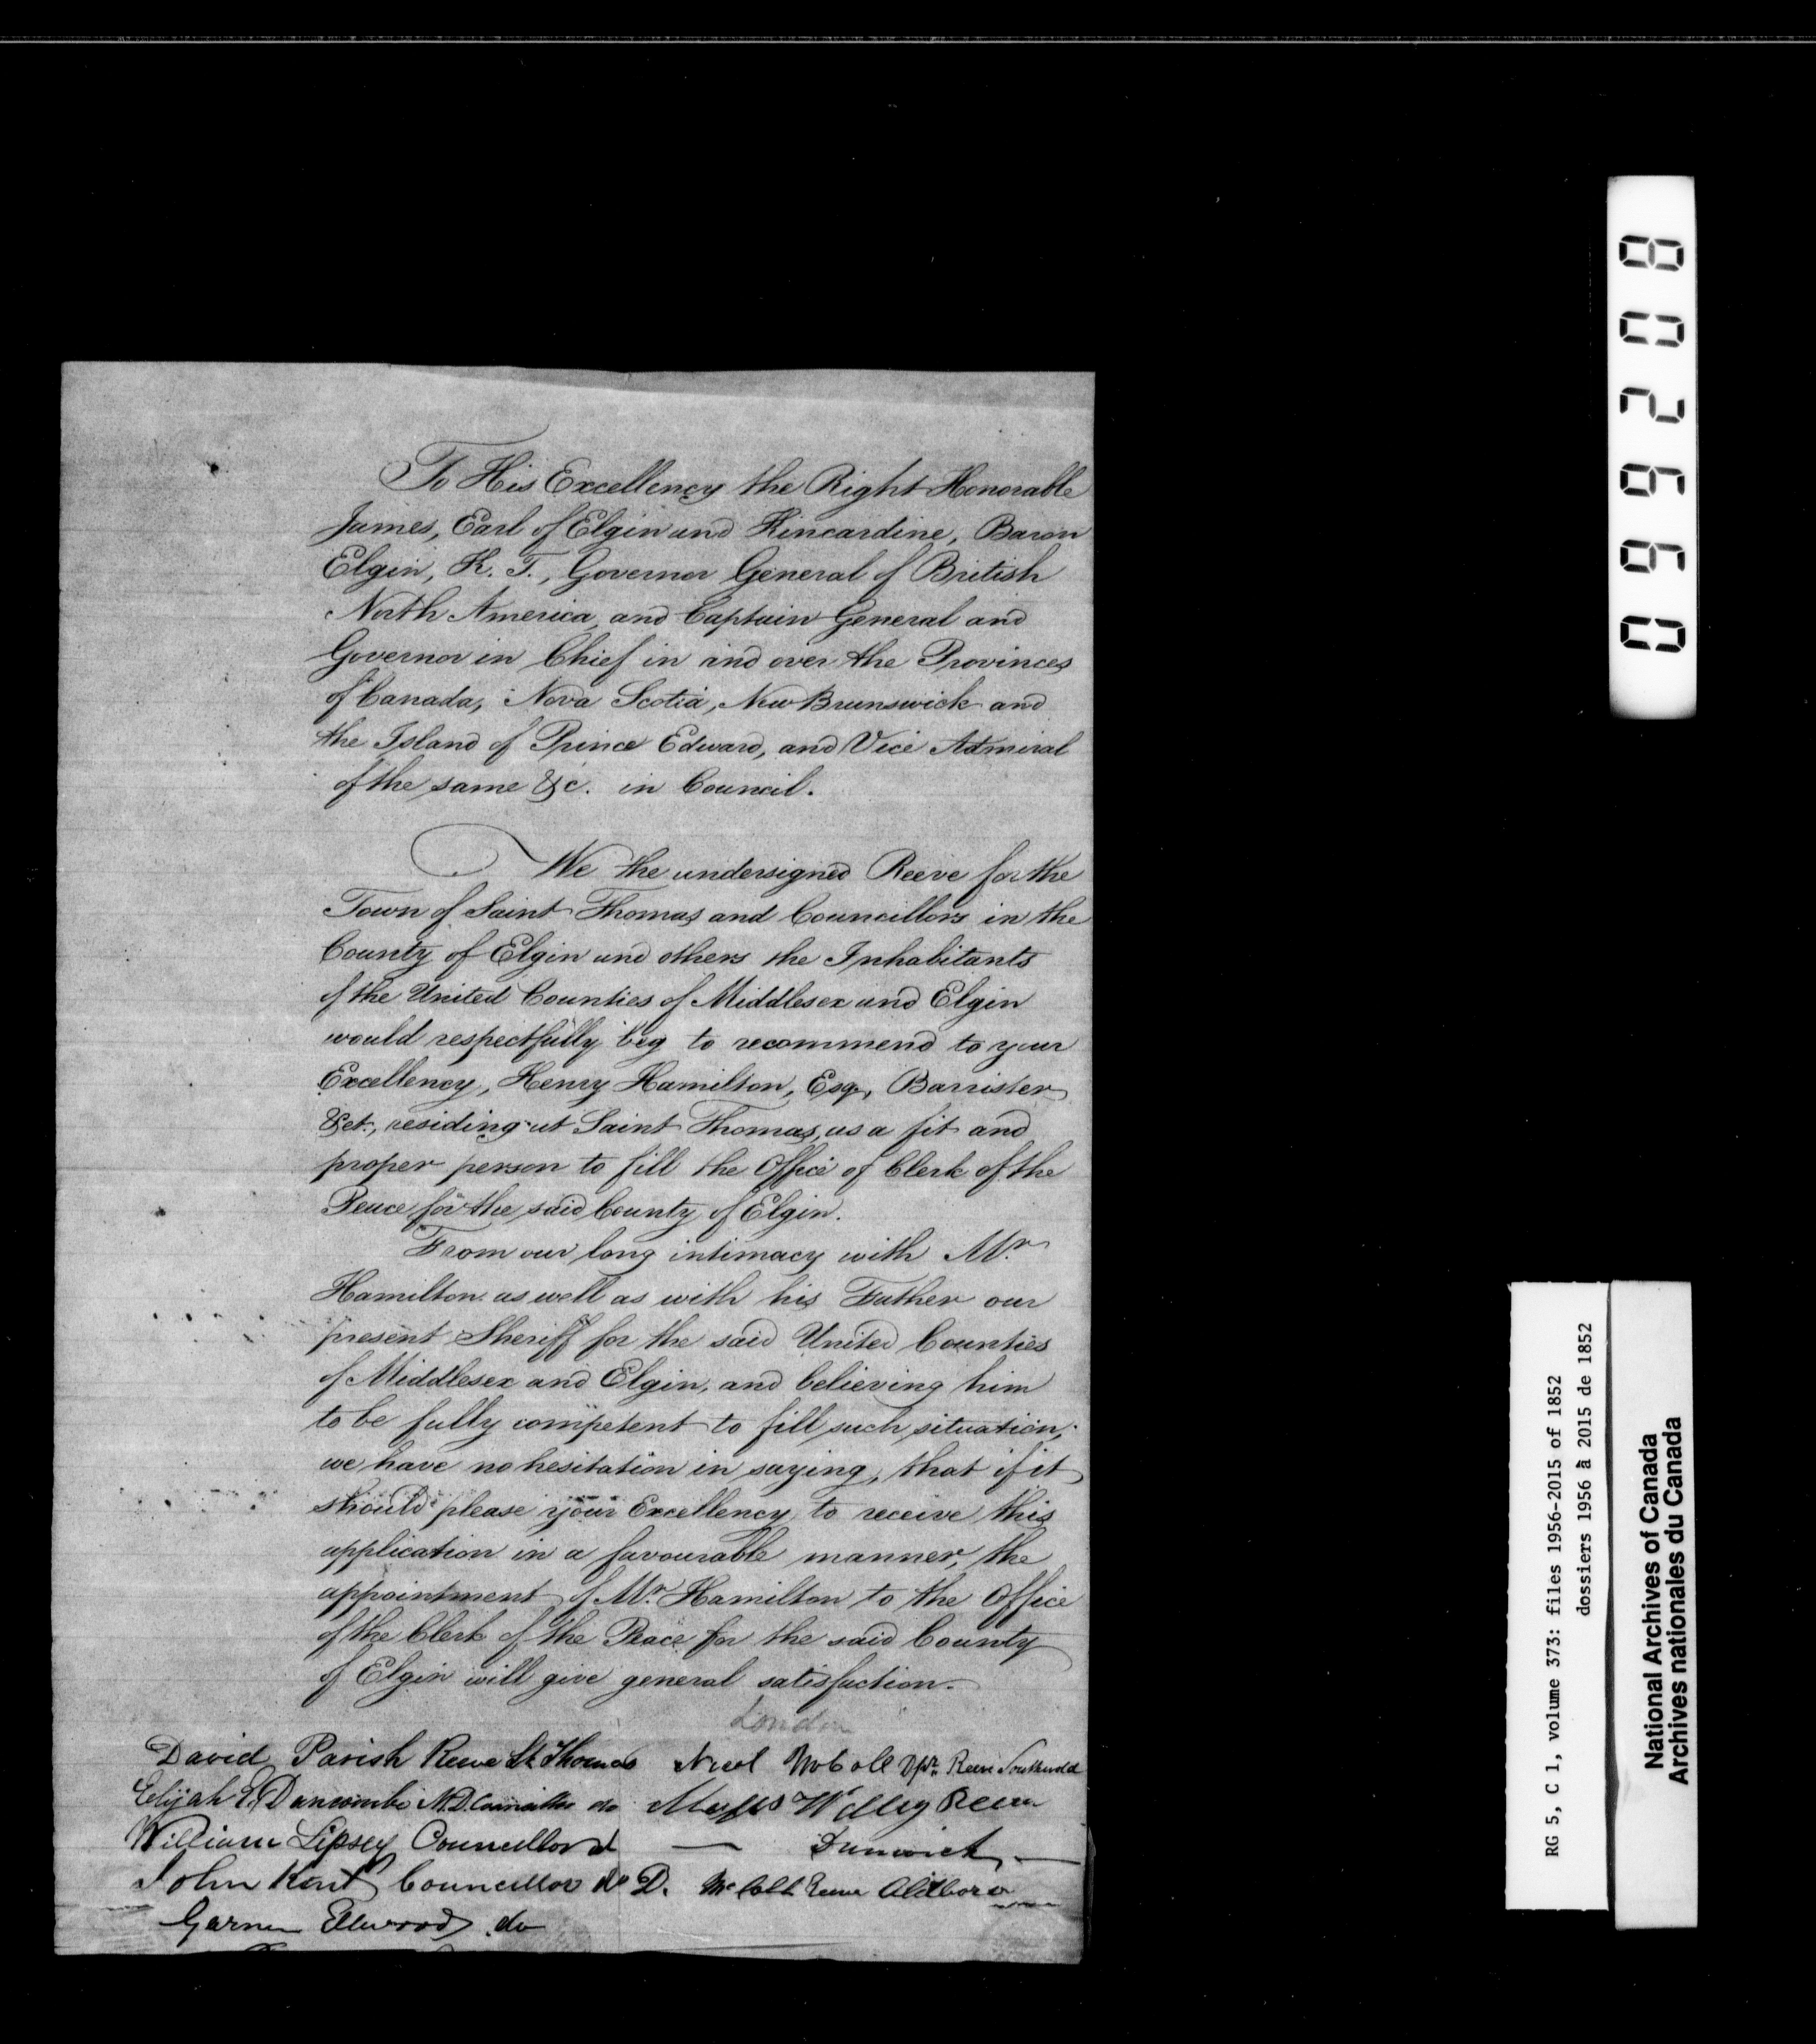 To His Excellency the Right Honorable
James, Earl of Elgin and Kincardine, Baron
Elgin, K. T., Governor General of British
North America, and Captain General and
Governor in Chief in and over the Provinces
of Canada, Nova Scotia, New Brunswick and
the Island of Prince Edward, and Vice Admiral
of the same &c. in Council.
We the undersigned Reeve for the
Town of Saint Thomas and Councillors in the
County of Elgin and others the Inhabitants
of the United Counties of Middlesex and Elgin
would respectfully beg to recommend to your
Excellency, Henry Hamilton, Esq., Barrister
&ct., residing at Saint Thomas, as a fit and
proper person to fill the Office of Clerk of the
Peace for the said County of Elgin.
From our long intimacy with Mr.
Hamilton as well as with his Father our
present Sheriff for the said United Counties
of Middlesex and Elgin, and believing him
to be fully competent to fill such situation,
we have no hesitation in saying, that if it
should please your Excellency to receive this
application in a favourable manner, the
appointment of Mr. Hamilton to the Office
of the Clerk of the Peace for the said County
of Elgin will give general satisfaction.
London
David Parish Reeve St. Thomas
Elijah E. Duncombe M.D. Councillor do
William Lipsey Councillor
John Kent Councillor do
Garner Ellwood do
McColl Reeve Southwold
Willey Reeve
Dunwich
D. McColl Reeve Aldboro
099208
RG 5, C 1, volume 373: files 1956-2015 of 1852
dossiers 1956 à 2015 de 1852
National Archives of Canada
Archives nationales du Canada